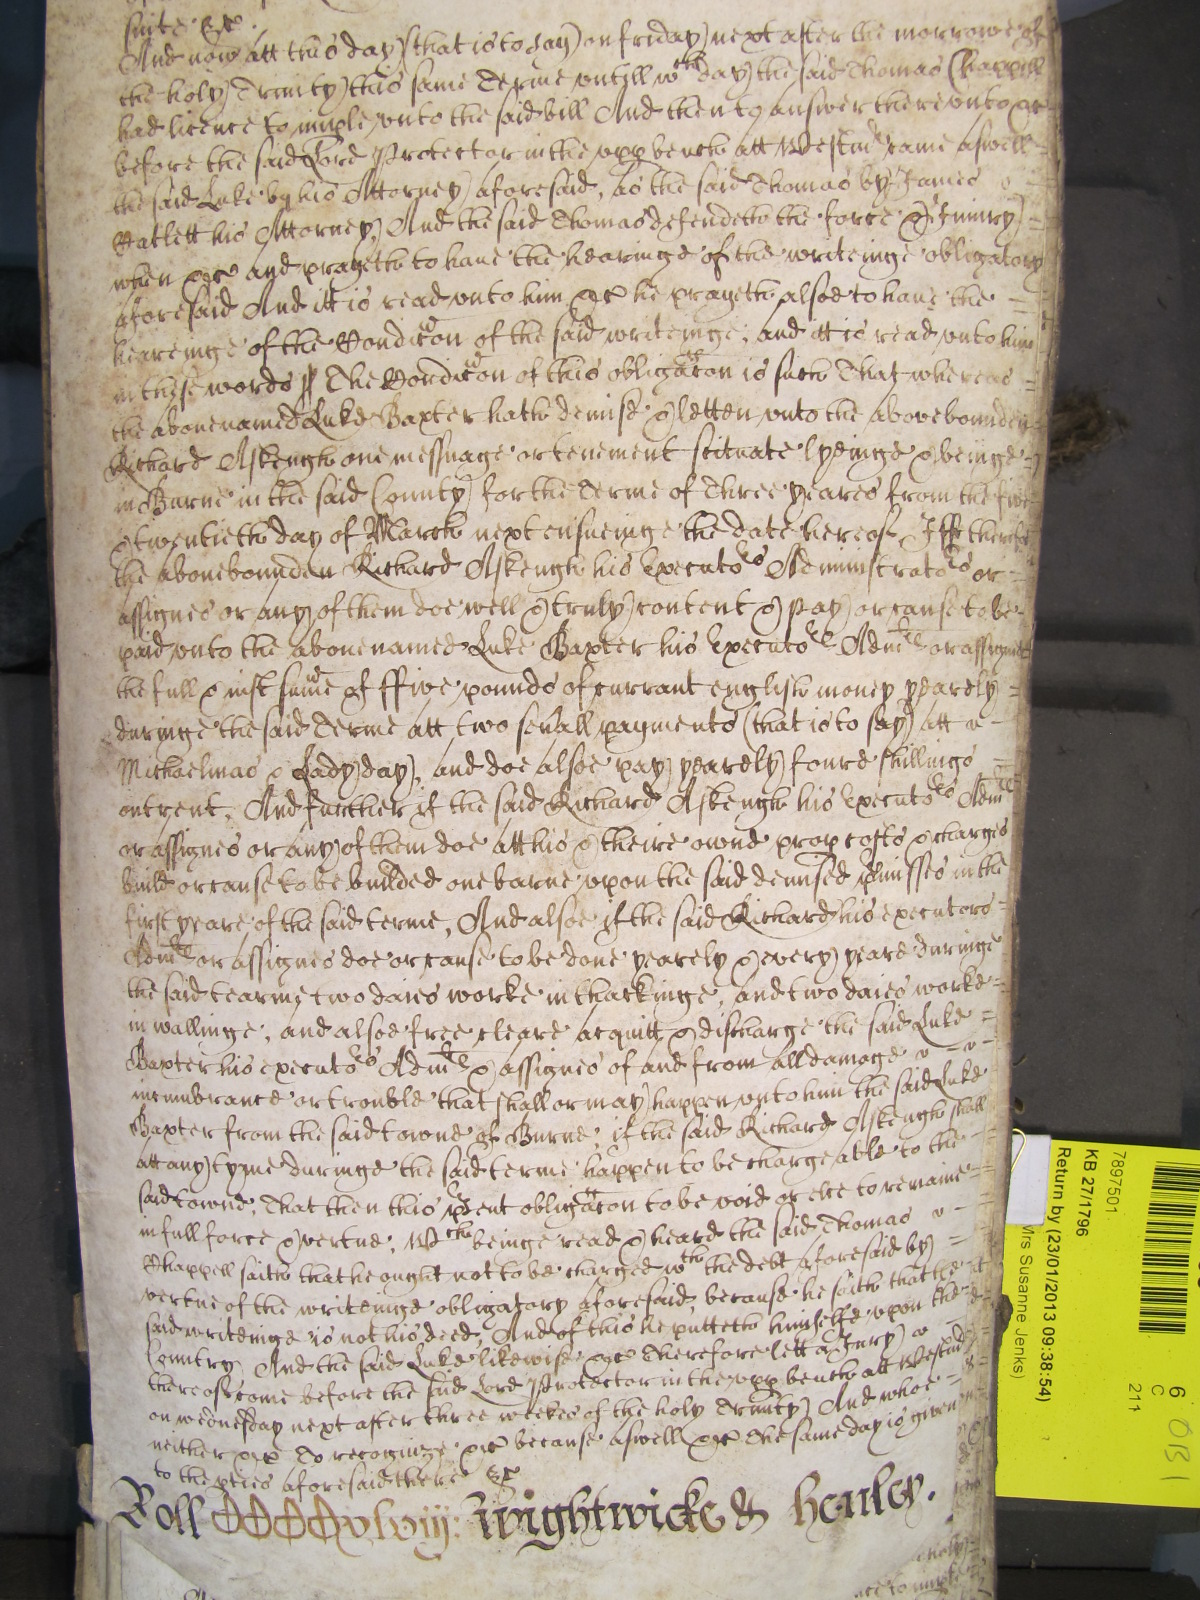 suite &c.
And now att this day (that is to say) on friday next after the morrowe of
the holy Trinity this same Terme untill wch day the said Thomas Chappell
had licence to imple unto the said bill And then to answer thereunto &c
before the said Lord Protector in the upp bench att Westmr came aswell
the said Luke by his Attorney aforesaid, as the said Thomas by James
Hatlett his Attorney, And the said Thomas defendeth the force & Iniury
when &c and prayeth to have the hearinge of the writeinge obligatory
aforesaid And itt is read unto him &c he prayeth alsoe to have the
heareinge of the Condicon of the said writeinge, and itt is read unto him
in these words ss The Condicon of this obligacon is such That whereas
the abovenamed Luke Baxter hath demise & letten unto the abovebounden
Richard Askengh one messuage or tenement scituate lyeinge & beinge
in Burne in the said County for the Terme of Three yeares from the five
& twentieth day of March next ensueinge the date hereof Iff therefore
the abovebounden Richard Askengh his Executors Administrators or
assignes or any of them doe well & truly content & pay or cause to be
paid unto the abovenamed Luke Baxter his Executors Admrs or assignes
the full & iust sume of ffive pounds of currant english money yearely
duringe the said Terme att two seuall payments (that is to say) att
Michaelmas & Lady day, and doe alsoe pay yearely foure shillings
outrent, And further if the said Richard Askengh his Executors Admrs
or assignes or any of them doe att his & theire owne prop costs & charges
build or cause to be builded one barne upon the said demised pmisses in the
first yeare of the said terme, And alsoe if the said Richard his executors
Admrs or assignes doe or cause to be done yearely & every yeare duringe
the said tearme two daies worke in thackinge, and two daies worke
in wallinge, and alsoe free cleare acquitt & discharge the said Luke
Baxter his executors Admrs & assignes of and from all damage
incumbrance or trouble that shall or may happen unto him the said Luke
Baxter from the said towne of Burne, if the said Richard Askengh shall
att any tyme duringe the said terme happen to be chargeable to the
said towne, That then this psent obligacon to be void or else to remaine
in full force & vertue, Wch beinge read & heard the said Thomas
Chappell saith that he ought not to be charged wth the debt aforesaid by
vertue of the writeinge obligatory aforesaid, because he saith that the
said writeinge is not his deed, And of this he putteth himselfe upon the
Country, And the said Luke likewise &c Therefore lett a Jury
thereof come before the said Lord Protector in the upp bench att Westmr
on wednesday next after three weekes of the holy Trinity And whoe
neither &c To recognize &c because aswell &c The same day is given
to the pties aforesaid there &c
Roll CCCCxlviij: Wightwicke & Henley.
7897501
KB 27/1796
Return by (23/01/2013 09:38:54)
Mrs Susanne Jenks)
6
C
211